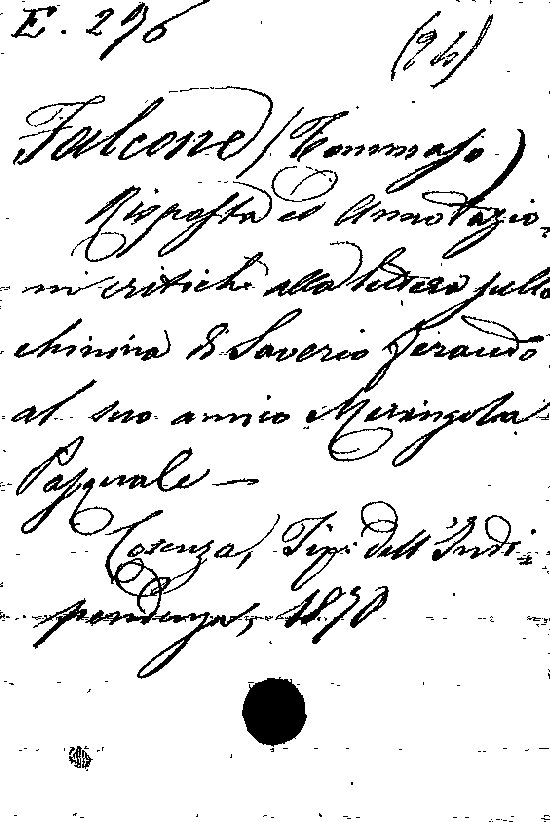 E. 296
(24)
Falcone (Tommaso)
Risposta ed Annotazio-
ni critiche alla lettera sulla
chinina di Saverio Giraudo
al suo amico Maringola
Pasquale —
Cosenza, Tip. dell'Indi-
pendenza, 1870